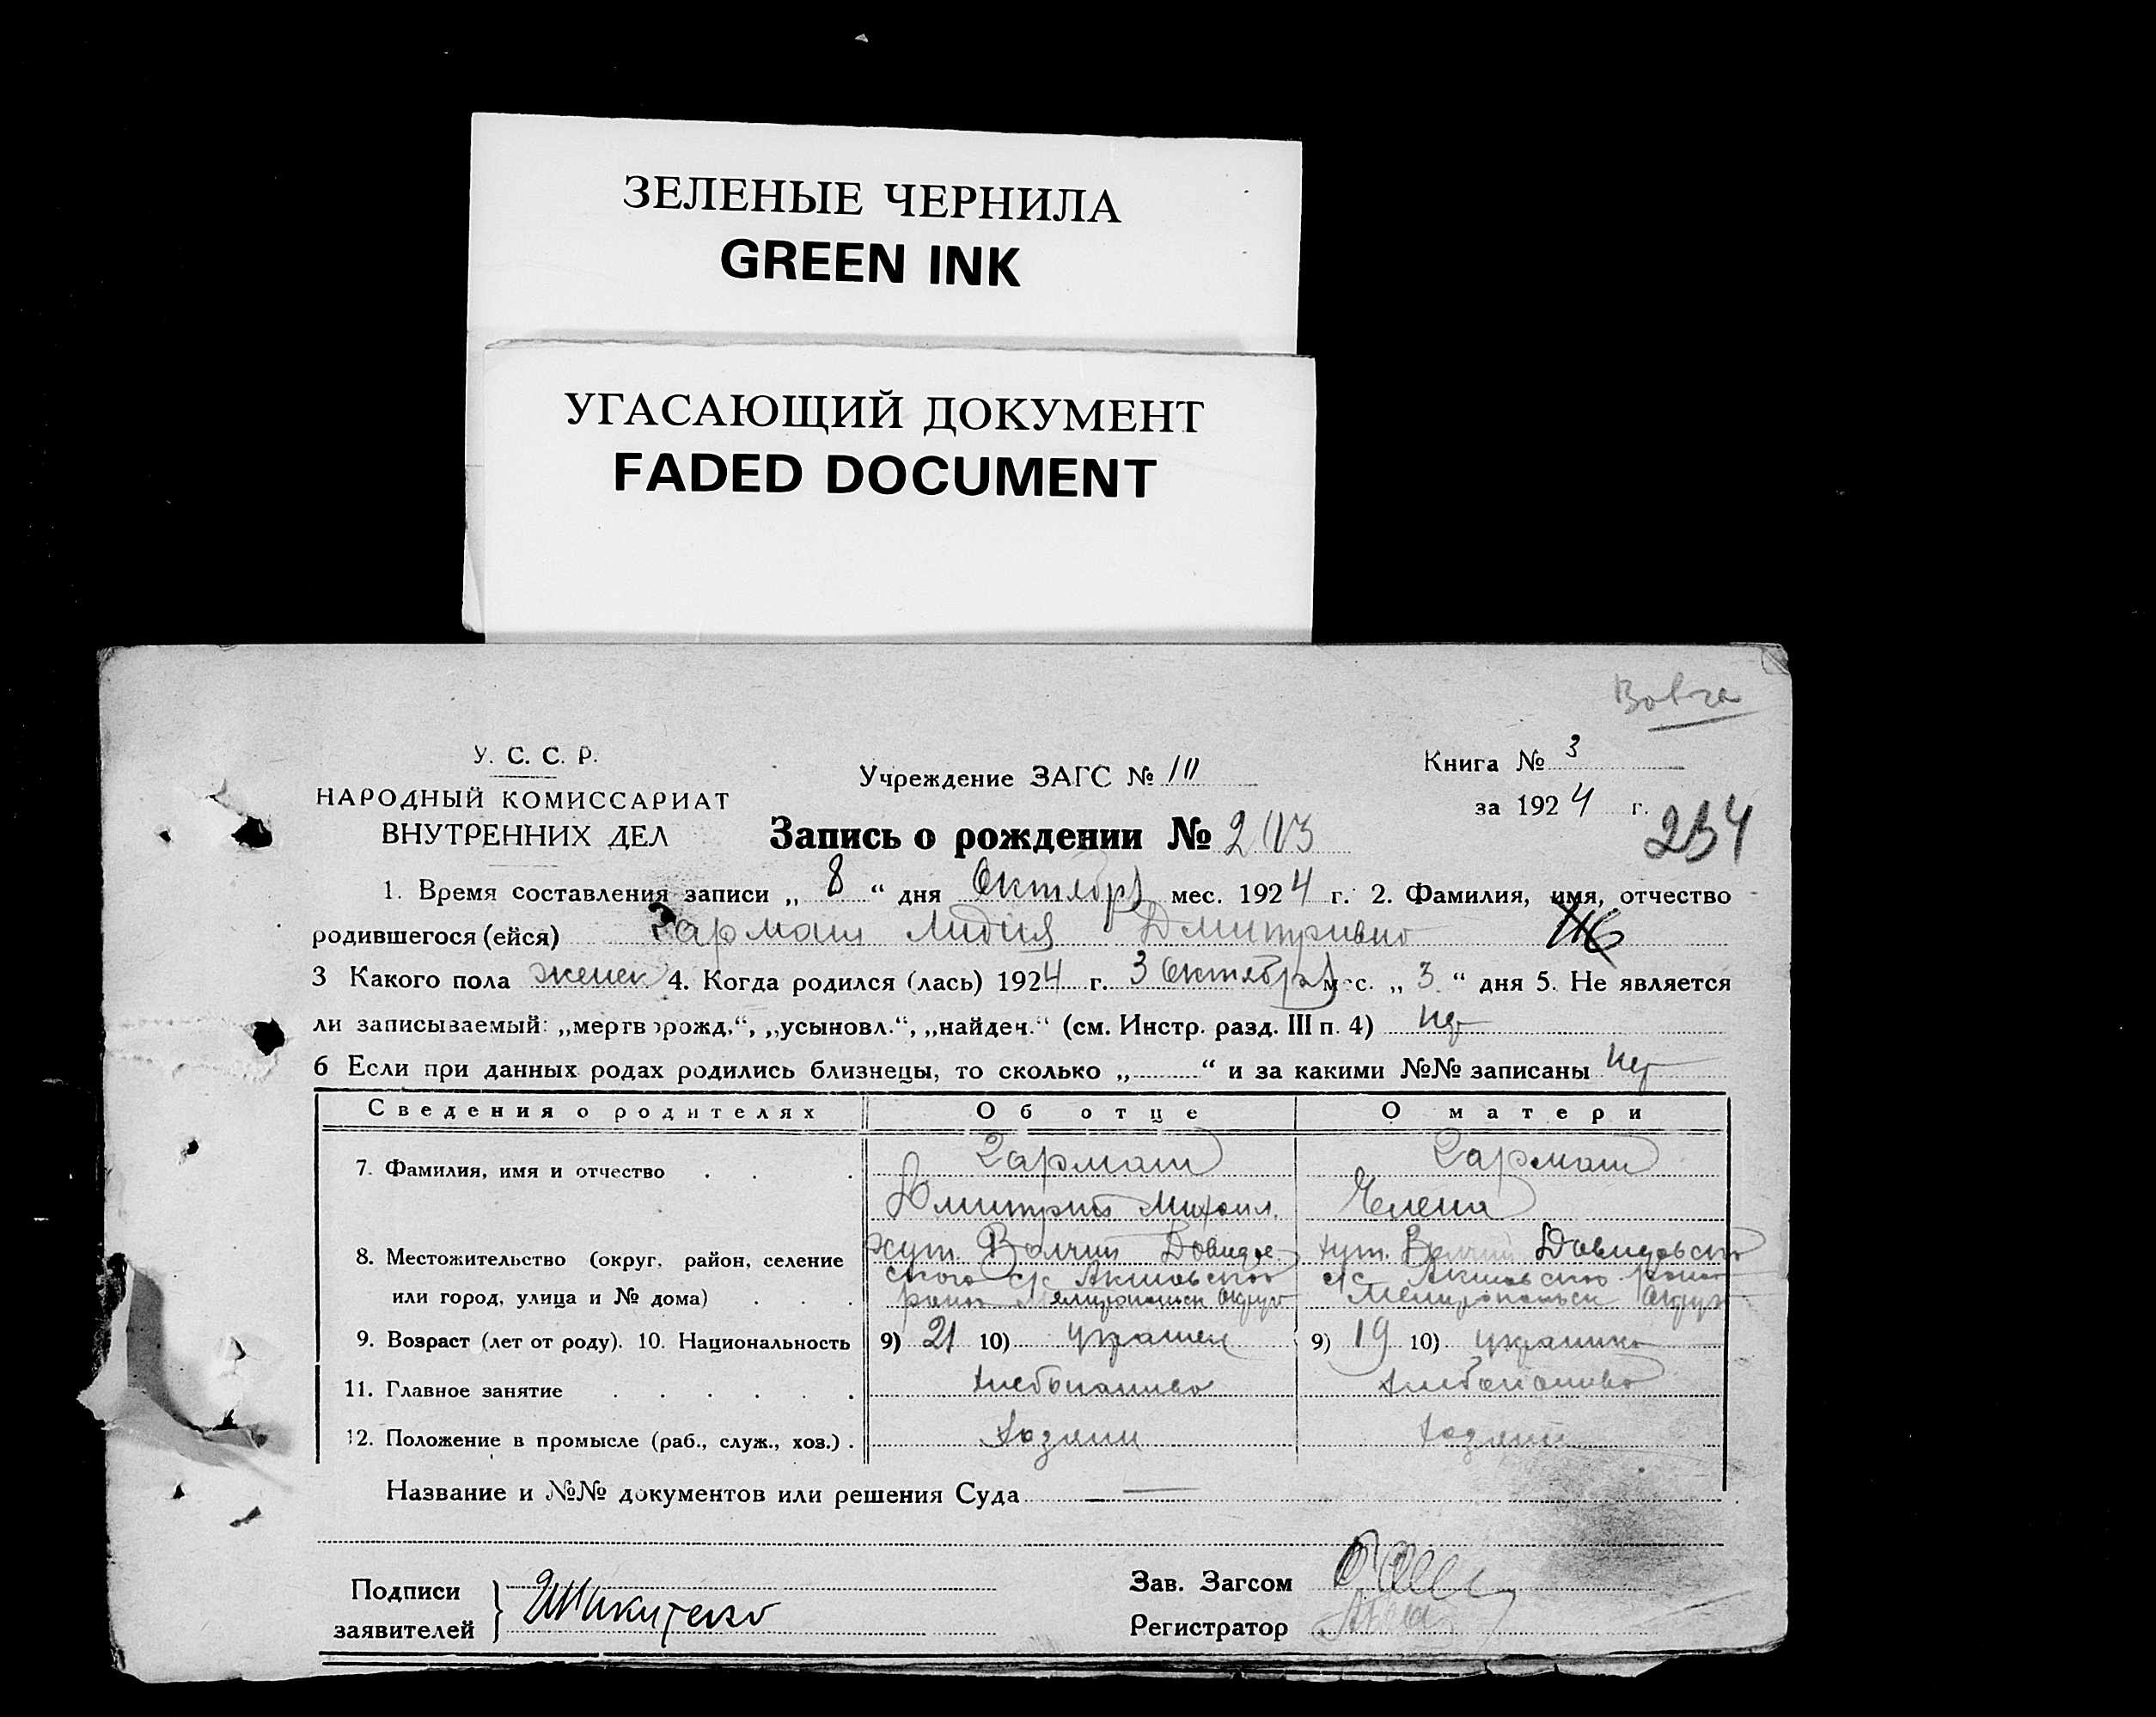 ЗЕЛЕНЫЕ ЧЕРНИЛА
GREEN INK
УГАСАЮЩИЙ ДОКУМЕНТ
FADED DOCUMENT
У. С. С. Р.
НАРОДНЫЙ КОМИССАРИАТ
ВНУТРЕННИХ ДЕЛ
Учреждение ЗАГС №
Книга № 3
за 1924 г.
234
Запись о рождении №
1. Время составления записи „ 8 “ дня Октября мес. 1924 г. 2. Фамилия, имя, отчество
родившегося (ейся) Гармаш Лидия
3 Какого пола женск 4. Когда родился (лась) 1924 г. 3 Октября мес. „ 3 “ дня 5. Не является
ли записываемый: „мертворожд.“, „усыновл.“, „найден.“ (см. Инстр. разд. III п. 4) нет
6 Если при данных родах родились близнецы, то сколько „ “ и за какими №№ записаны нет
Сведения о родителях Об отце О матери
7. Фамилия, имя и отчество Гармаш Гармаш
Дмитрий Михаил. Елена
8. Местожительство (округ, район, селение
или город, улица и № дома)
хут. Волчий Давидов
ского с/с Акимовского
хут. Волчий Давидовского
с/с Акимовского
9. Возраст (лет от роду). 10. Национальность 9) 21 10) 9) 19 10)
11. Главное занятие
12. Положение в промысле (раб., служ., хоз.)
Название и №№ документов или решения Суда —
Подписи
заявителей
Зав. Загсом
Регистратор